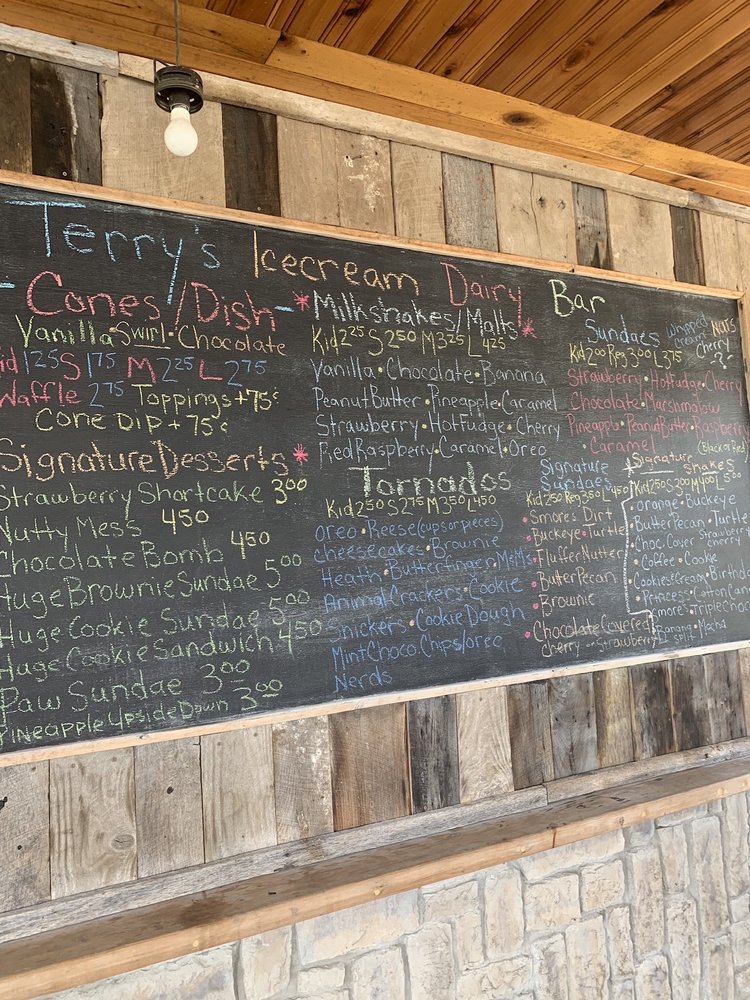 Terry's Icecream Dairy Bar
Cones/Dish
Vanilla • Swirl • Chocolate
id 1 25 S 1 75 M 2 25 L 2 75
Waffle 2 75 Toppings + 75¢
Cone Dip + 75¢
Signature Desserts *
Strawberry Shortcake 3 00
Nutty Mess 4 50
Chocolate Bomb 4 50
Huge Brownie Sundae 5 00
Huge Cookie Sundae 5 00
Huge Cookie Sandwich 4 50
Paw Sundae 3 00
Pineapple UpsideDown 3 00
* Milkshakes/Malts *
Kid 2 25 S 2 50 M 3 25 L 4 25
Vanilla • Chocolate • Banana
Peanut Butter • Pineapple • Caramel
Strawberry • Hot Fudge • Cherry
Red Raspberry • Caramel • Oreo
Tornados
Kid 2 50 S 2 75 M 3 50 L 4 50
Oreo • Reese (cups or pieces)
Cheesecakes • Brownie
Heath • Butterfinger • M&Ms
Animal Crackers • Cookie
Snickers • Cookie Dough
Mint Choco. Chips/Oreo
Nerds
Sundaes
Whipped Cream
Nuts
Cherry
-?-
Kid 2 00 Reg 3 00 L 3 75
Strawberry • Hot Fudge • Cherry
Chocolate • Marshmallow
Pineapple • Peanut Butter • Raspberry
Caramel (Black or Red)
Signature
Sundaes
Kid 2 50 Reg 3 50 L 4 50
• Smores Dirt
• Buckeye • Turtle
• FlufferNutter
• Butter Pecan
• Brownie
• Chocolate Covered
Cherry or Strawberry
* Signature Shakes
Kid 2 50 S 3 00 M 4 00 L 5 00
• Orange • Buckeye
• Butter Pecan • Turtle
• Choc. Cover Strawber
Cherry
• Coffee • Cookie
• Cookies&Cream • Birthda
• Princess • Cotton Can
• Smores • Triple Choc
• Banana Split • Macha